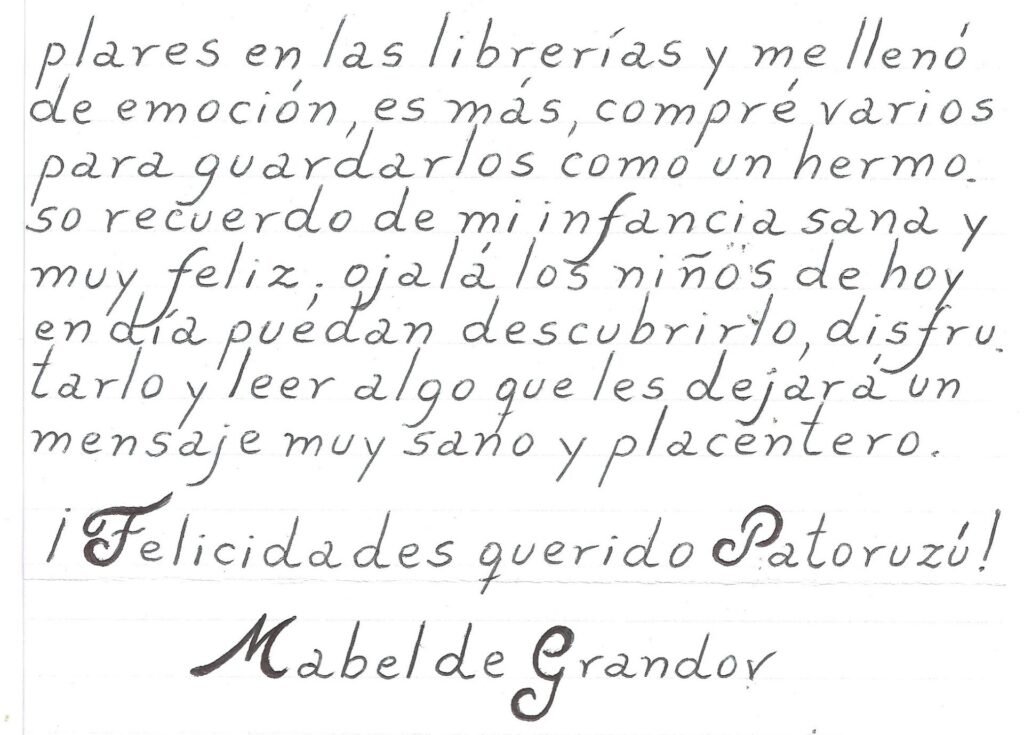 plares en las librerías y me llenó
de emoción, es más, compré varios
para guardarlos como un hermo-
so recuerdo de mi infancia sana y
muy feliz; ojalá los niños de hoy
en día puedan descubrirlo, disfru-
tarlo y leer algo que les dejará un
mensaje muy sano y placentero.
¡Felicidades querido Patoruzú!
Mabel de Grandov